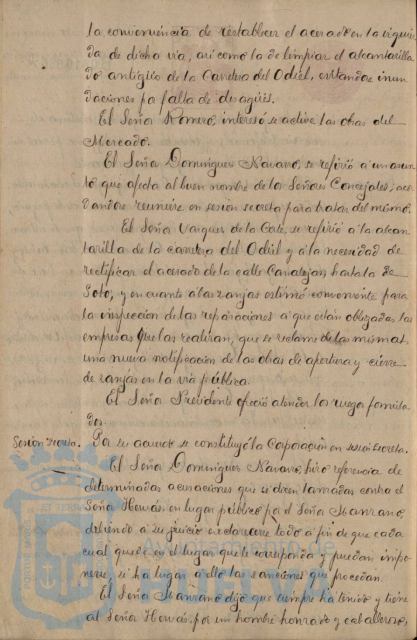 la conveniencia de restablecer el acerado en la izquier
da de dicha vía, así como la de limpiar el alcantarilla
do antiguo de la Carretera del Odiel, evitandose inun
daciones por falta de desagües.
El Señor Romero, interesó se active las obras del
Mercado.
El Señor Dominguez Navarro, se refirió a un asun
to que afecta al buen nombre de los Señores Concejales, acor
dandose reunirse en sesión secreta para tratar del mismo.
El Señor Vazquez de la Corte, se refirió á la alcan
tarilla de la carretera del Odiel y á la necesidad de
rectificar el acerado de la calle Canalejas, hasta la de
Soto, y en cuanto á las zanjas estimó conveniente para
la inspección de las reparaciones a que están obligadas las
empresas que las realizan, que se reclame de las mismas
una nueva notificación de las obras de apertura y cierre
de zanjas en la vía pública.
El Señor Presidente ofreció atender los ruegos formula
dos.
Sesión secreta. Por su acuerdo se constituyó la Corporación en sesión secreta.
El Señor Dominguez Navarro, hizo referencia de
determinadas acusaciones que se dicen lanzadas contra el
Señor en lugar público por el Señor
debiendo a su juicio esclarecerse todo a fin de que cada
cual quede en el lugar que le corresponda y puedan impo
nerse, si ha lugar a ello las sanciones que procedan.
El Señor dijo que siempre ha tenido y tiene
al Señor por un hombre honrado y caballeroso,